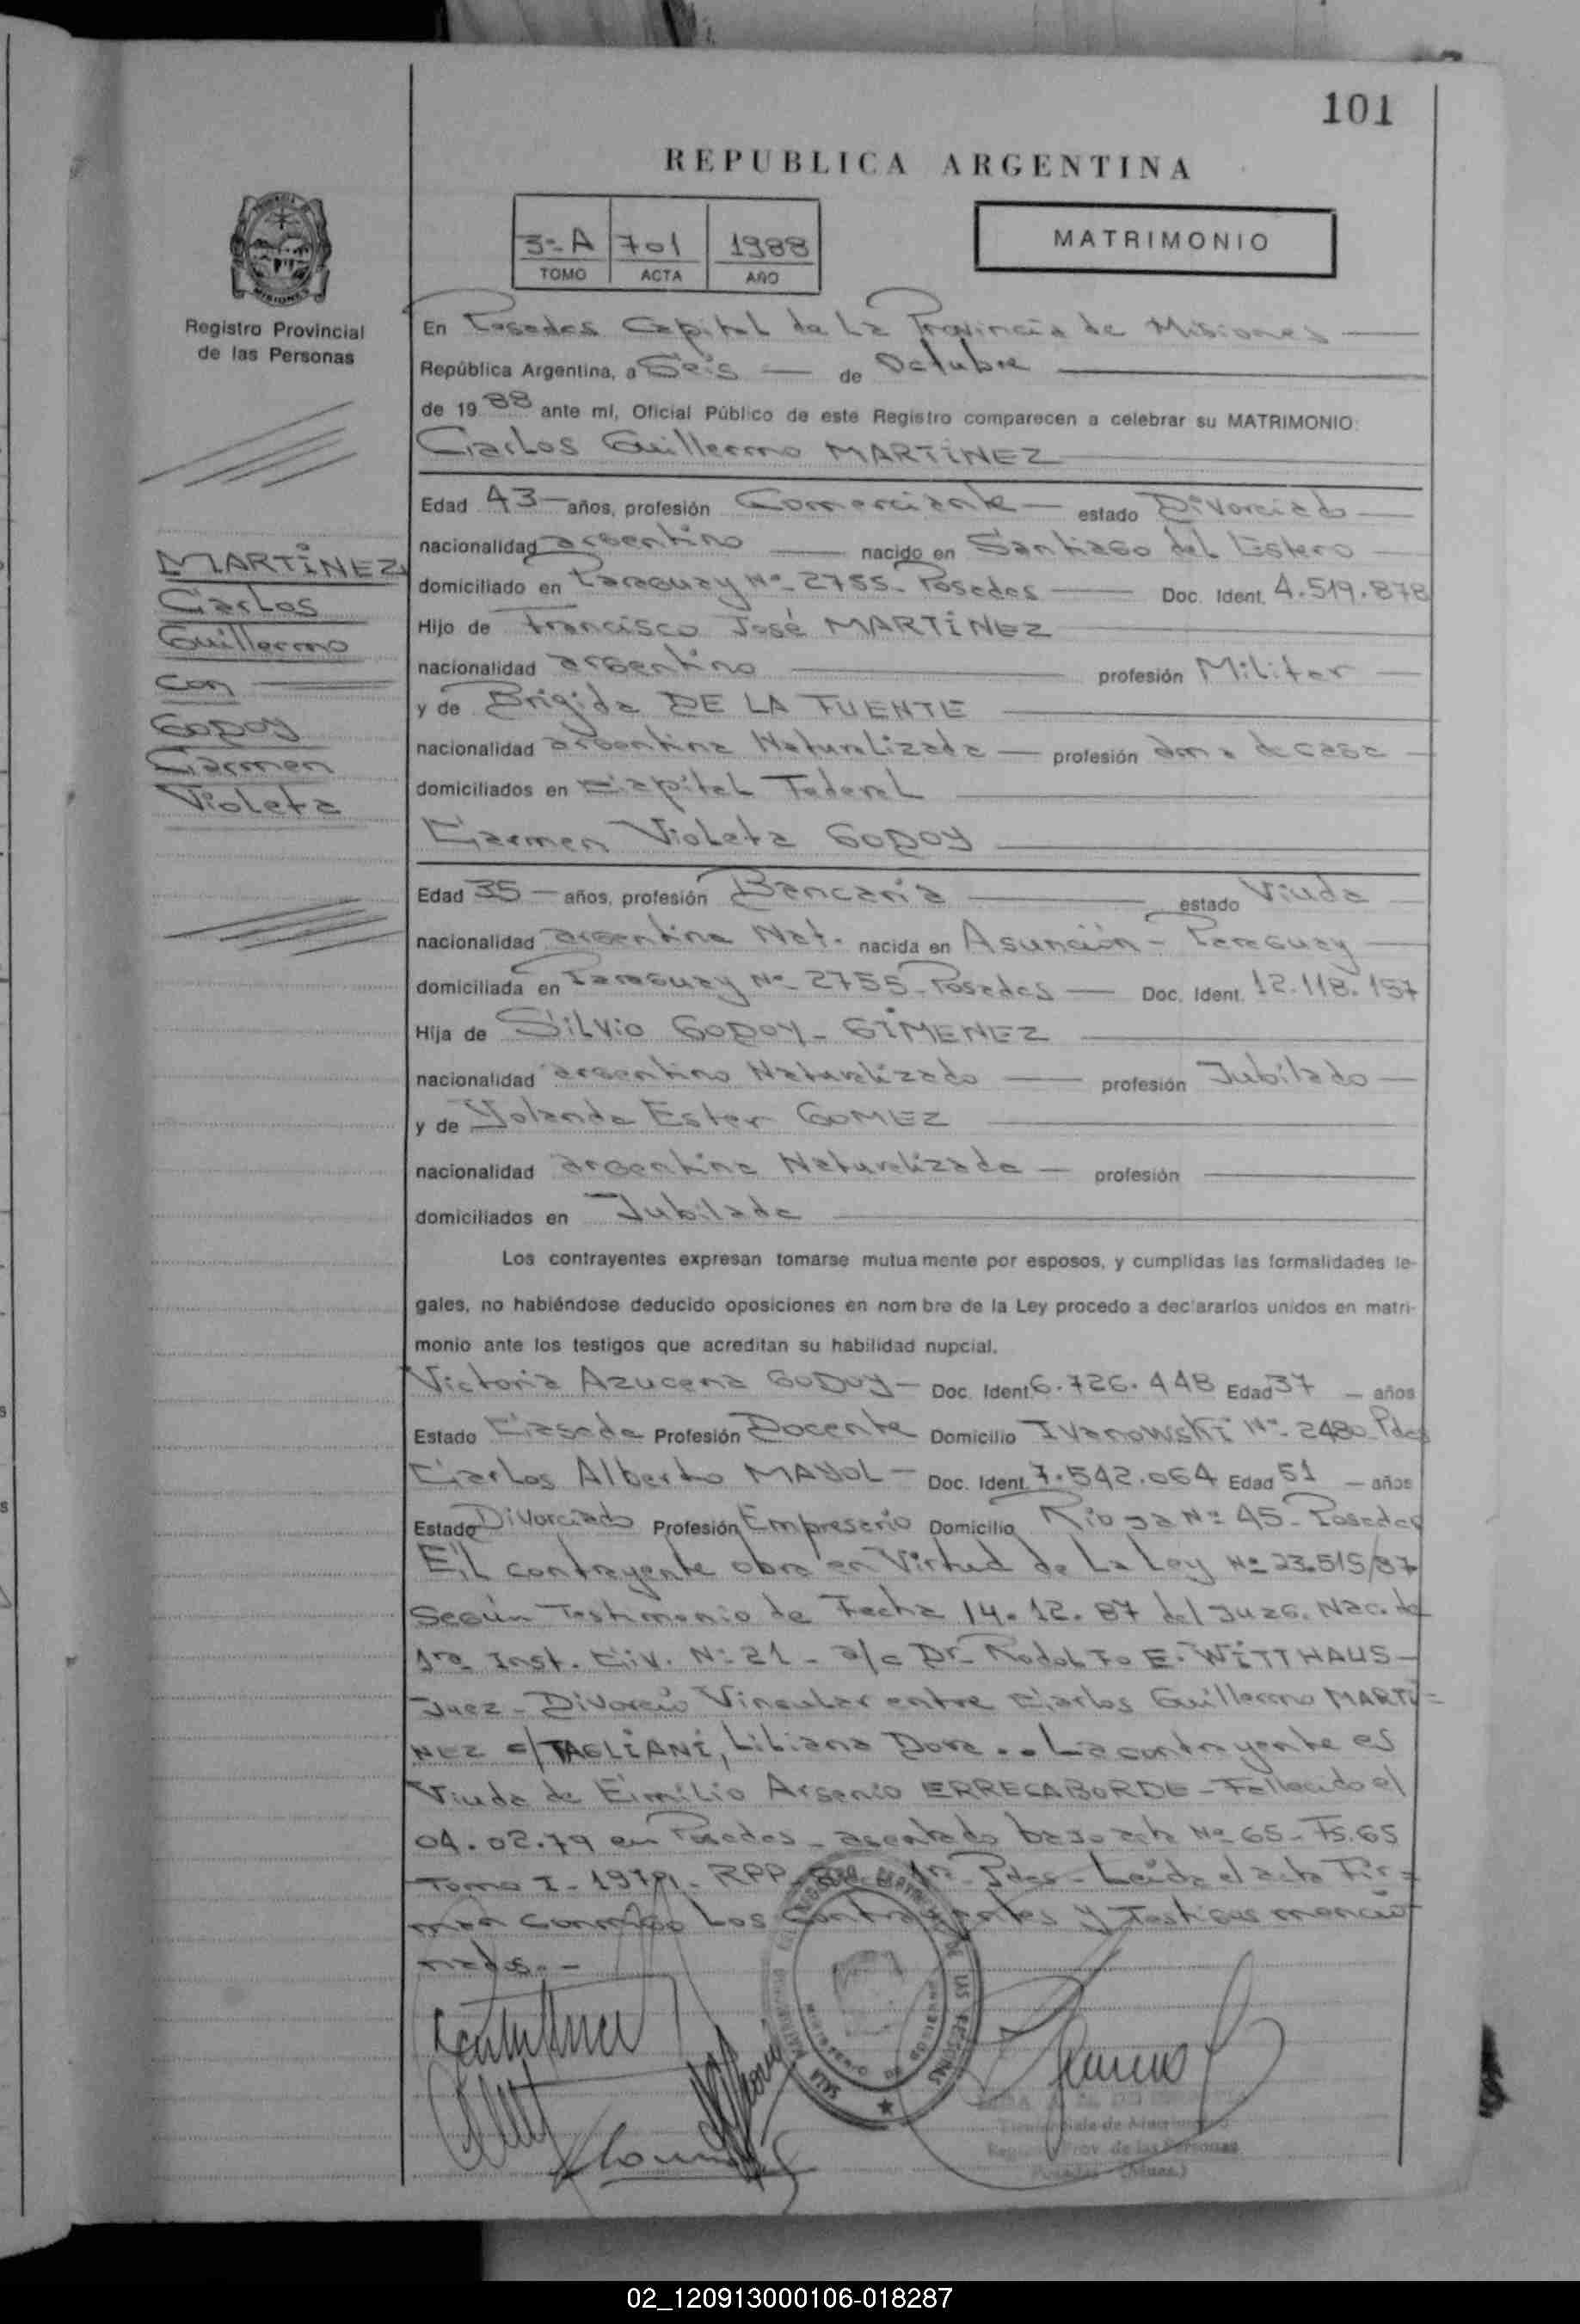 101
REPUBLICA ARGENTINA
3º A 701 1988
TOMO ACTA AÑO
MATRIMONIO
Registro Provincial
de las Personas
En Posadas Capital de La Provincia de Misiones
República Argentina, a Seis de Octubre
de 1988 ante mí, Oficial Público de este Registro comparecen a celebrar su MATRIMONIO:
Carlos Guillermo MARTINEZ
Edad 43 años, profesión Comerciante estado Divorciado
nacionalidad argentino nacido en Santiago del Estero
domiciliado en Paraguay Nº 2755 - Posadas Doc. Ident. 4.519.878
Hijo de Francisco José MARTINEZ
nacionalidad argentino profesión Militar
y de Brigida DE LA FUENTE
nacionalidad argentina Naturalizada profesión ama de casa
domiciliados en Capital Federal
MARTINEZ
Carlos
Guillermo
con
GODOY
Carmen
Violeta
Carmen Violeta GODOY
Edad 35 años, profesión Bancaria estado Viuda
nacionalidad argentina Nat. nacida en Asunción - Paraguay
domiciliada en Paraguay Nº 2755 - Posadas Doc. Ident. 12.118.157
Hija de Silvio GODOY - GIMENEZ
nacionalidad argentino Naturalizado profesión Jubilado
y de Yolanda Ester GOMEZ
nacionalidad argentina Naturalizada profesión
domiciliados en Jubilada
Los contrayentes expresan tomarse mutuamente por esposos, y cumplidas las formalidades le-
gales, no habiéndose deducido oposiciones en nombre de la Ley procedo a declararlos unidos en matri-
monio ante los testigos que acreditan su habilidad nupcial.
Victoria Azucena GODOY - Doc. Ident 6.726.448 Edad 37 años
Estado Casada Profesión Docente Domicilio Ivanowski Nº 2480 Pdas
Carlos Alberto MAYOL - Doc. Ident. 7.542.064 Edad 51 años
Estado Divorciado Profesión Empresario Domicilio Rioja Nº 45 - Posadas
El contrayente obra en Virtud de La Ley Nº 23.515/87
Según Testimonio de Fecha 14.12.87 del Juzg. Nac. de
1ra Inst. Civ. Nº 21 - a/c Dr. Rodolfo E. WITTHAUS -
Juez - Divorcio Vincular entre Carlos Guillermo MARTI=
NEZ c/ TAGLIANI, Liliana Dora .. La contrayente es
Viuda de Emilio Arsenio ERRECABORDE - Fallecido el
04.02.79 en Posadas - asentado bajo acta Nº 65 - Fs. 65
Tomo I - 1979 - RPP 1ra Pdas - Leída el acta Fir=
man conmigo Los contrayentes y Testigos mencio
nados. -
02_120913000106-018287